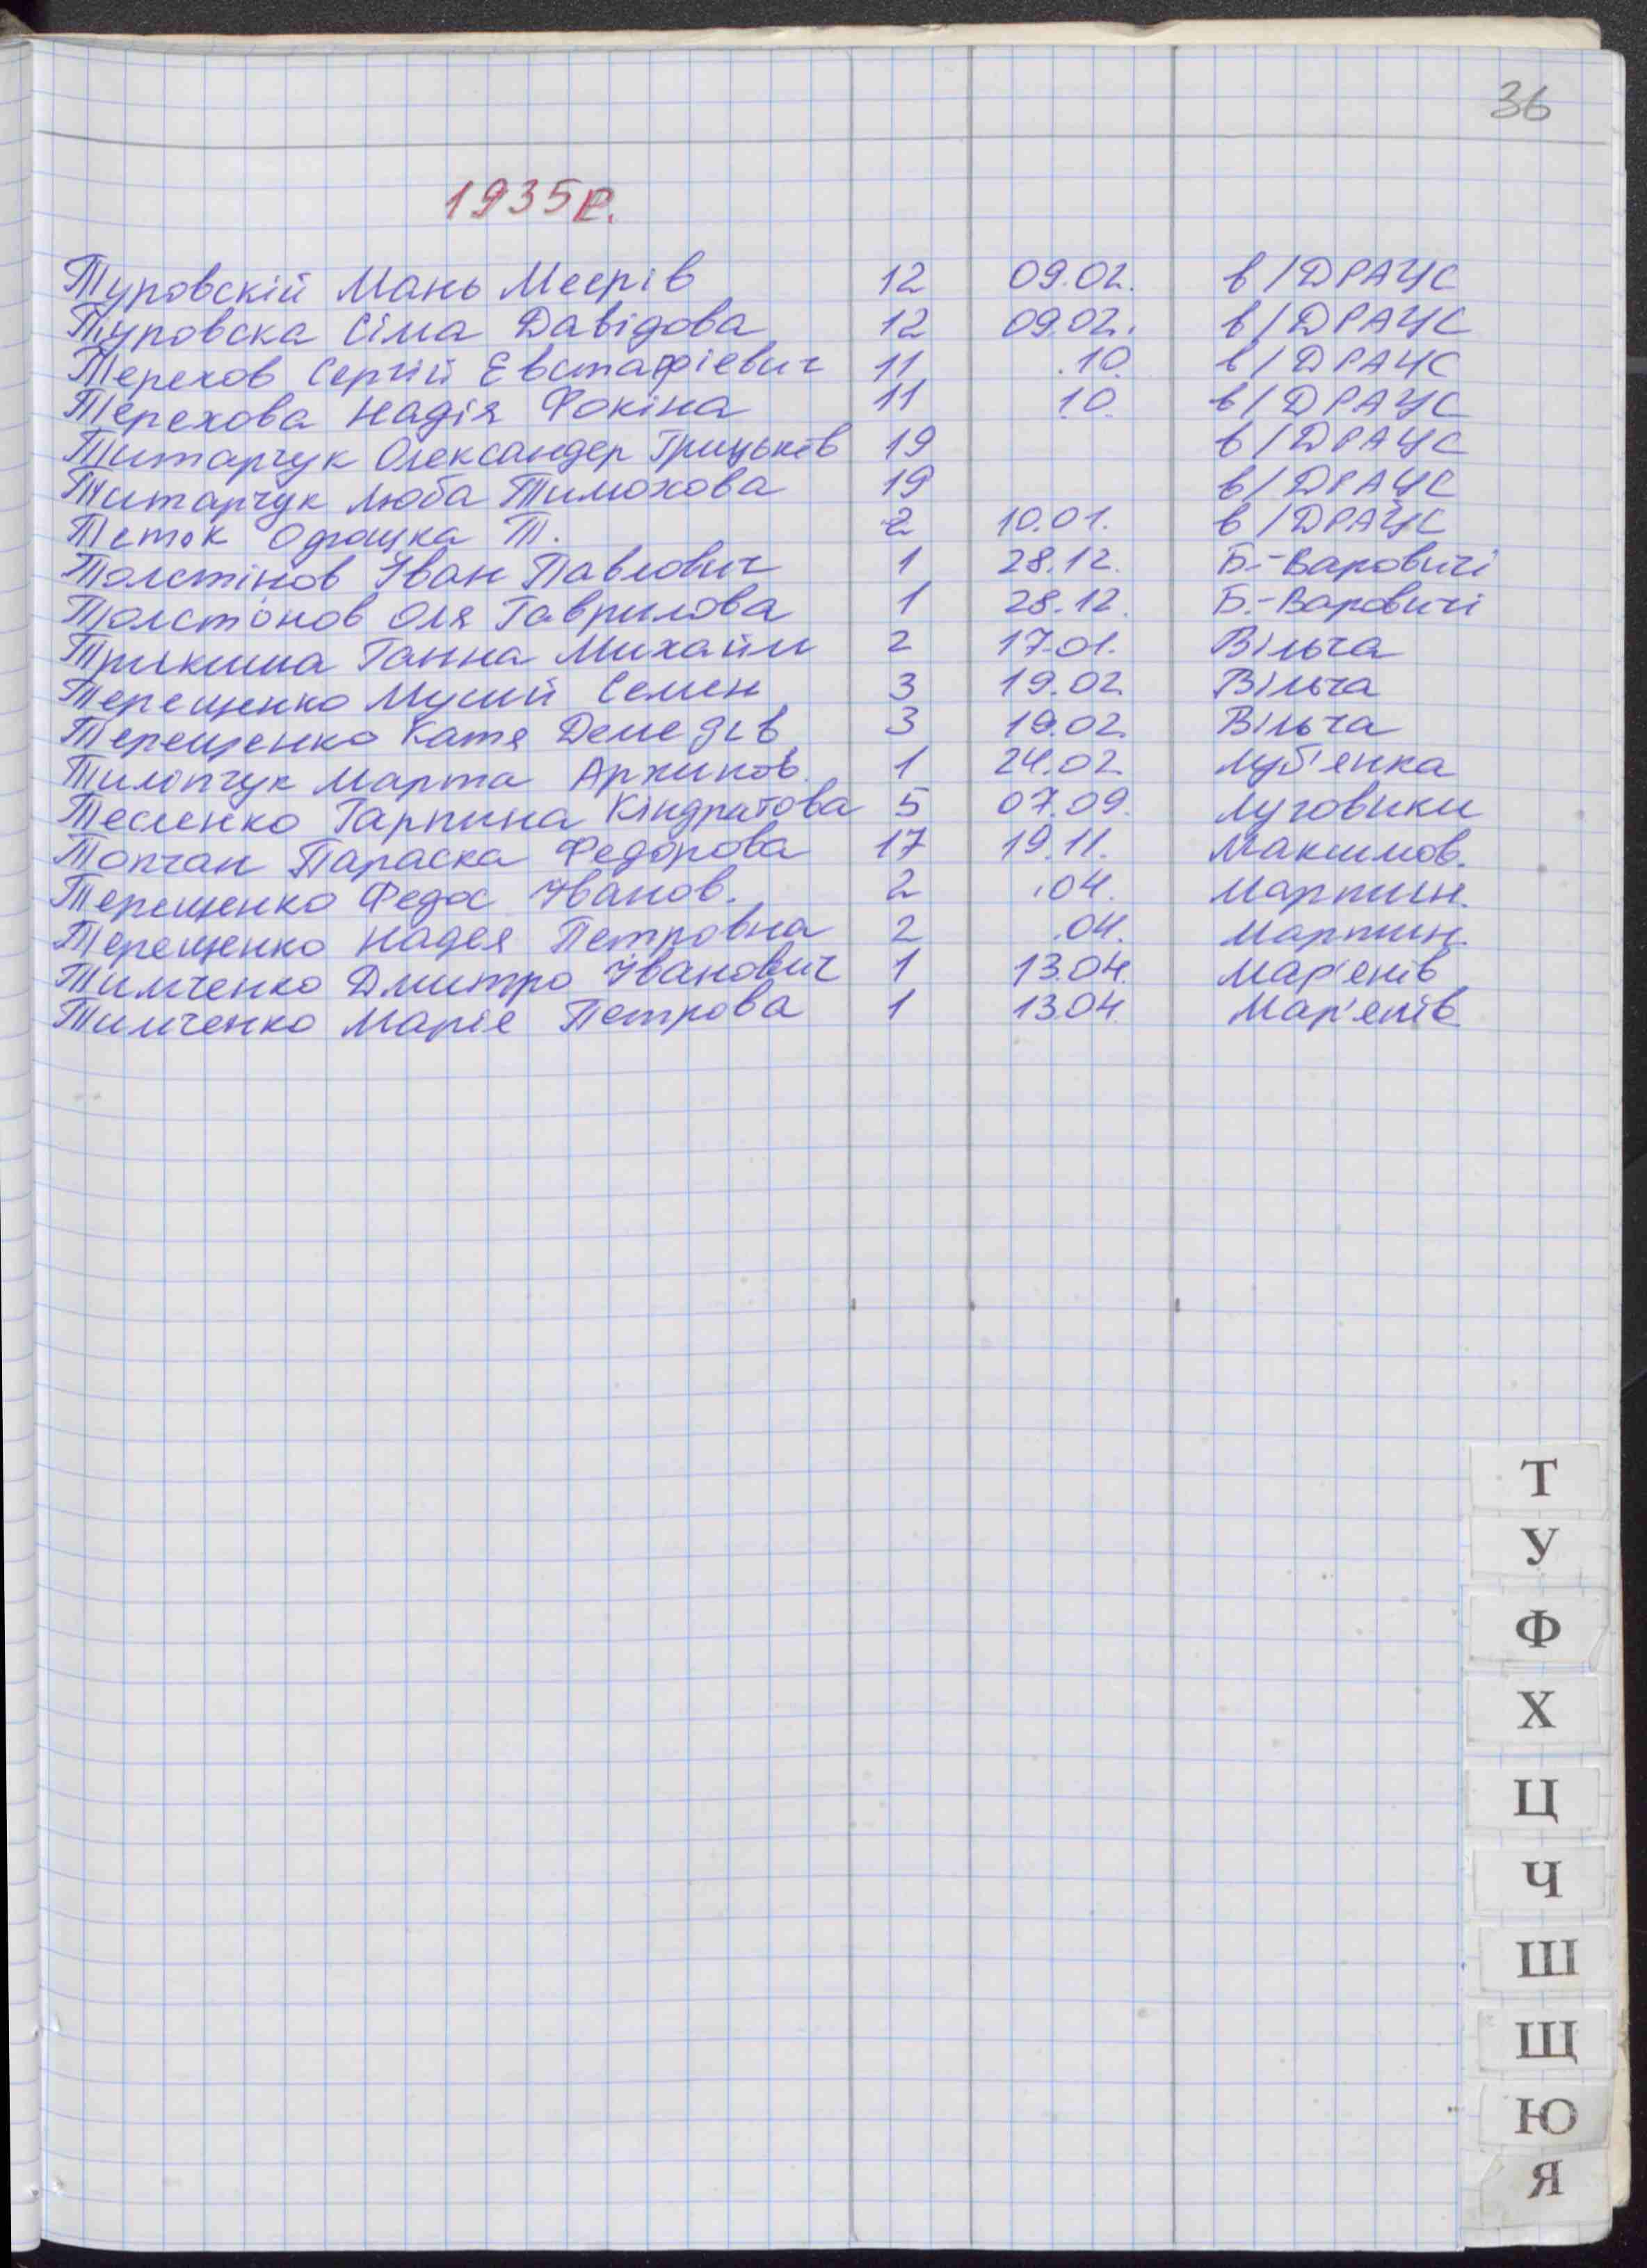 36
1935р.
Туровскій Мань Меерів 12 09.02. в/ДРАЦС
Туровска Сіма Давідова 12 09.02. в/ДРАЦС
Терехов Сергій Евстафіевич 11 .10. в/ДРАЦС
Терехова Надія Фокіна 11 10. в/ДРАЦС
Титарчук Олександер Грицьків 19 в/ДРАЦС
Титарчук Люба Тимохова 19 в/ДРАЦС
Одрошка Т. 2 10.01. в/ДРАЦС
Толстінов Іван Павлович 1 28.12. Б.-Варовичі
Толстонов Оля Гаврилова 1 28.12. Б.-Варовичі
Ганна Михайл 2 17.01. Вільча
Терещенко Мусий Семен 3 19.02. Вільча
Терещенко Катя 3 19.02. Вільча
Марта Архипов. 1 24.02. Луб'енка
Тесленко Гарпина Кіндратова 5 07.09. Луговики
Топчан Параска Федорова 17 19.11. Максимов.
Терещенко Федос Іванов. 2 .04. Мартин.
Терещенко Надея Петровна 2 .04. Мартин.
Тимченко Дмитро Іванович 1 13.04. Мар'енів
Тимченко Маріе Петрова 1 13.04. Мар'енів
Т
У
Ф
Х
Ц
Ч
Ш
Щ
Ю
Я